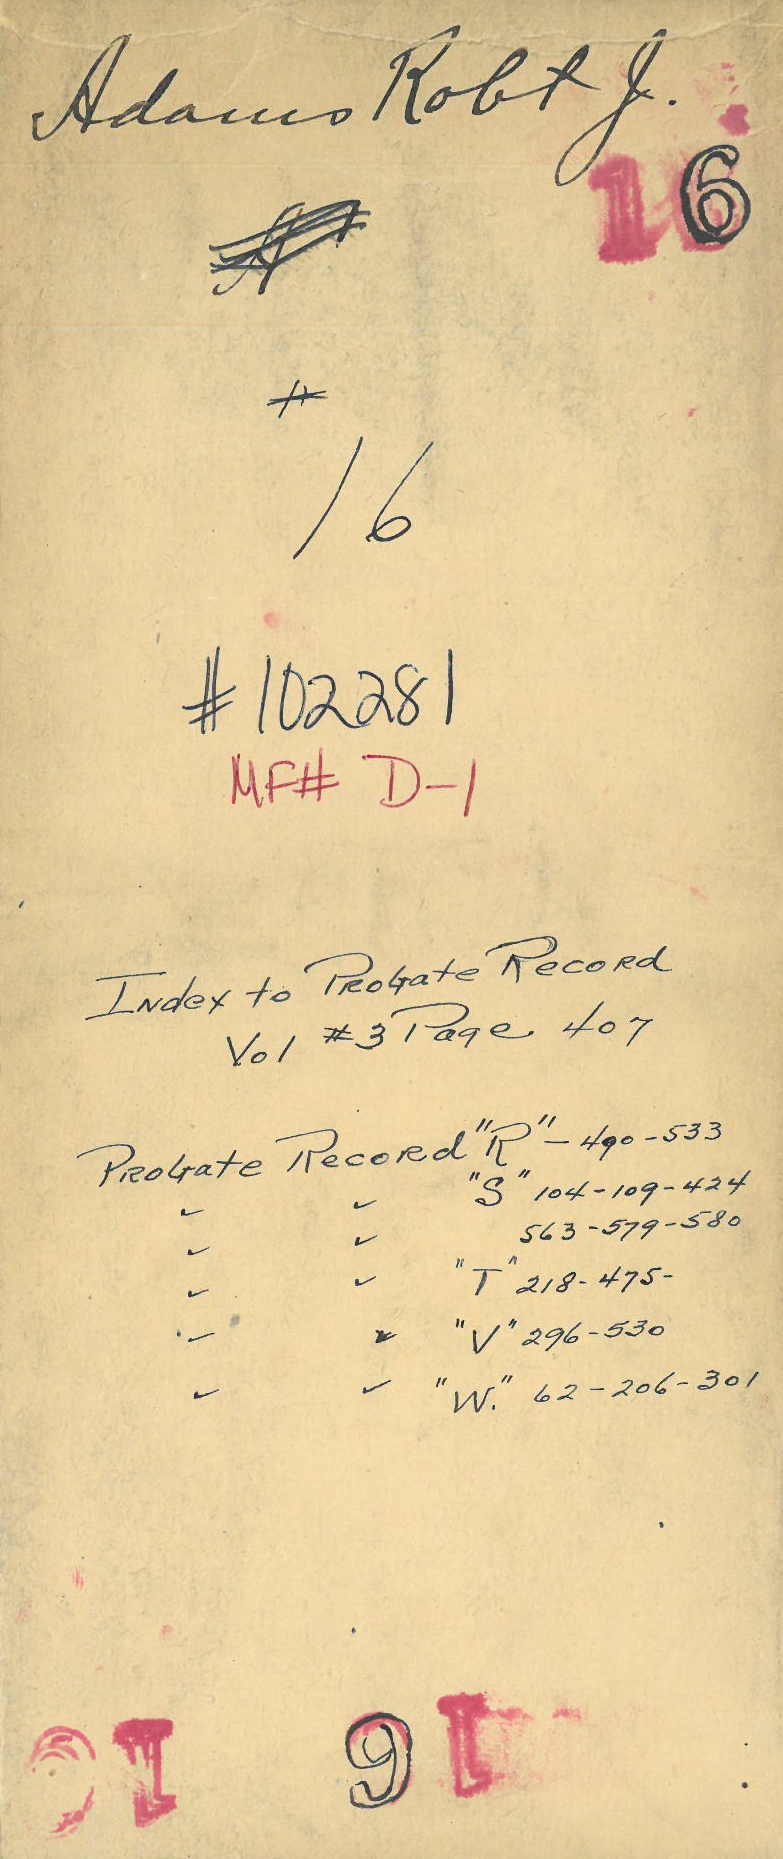 Adams Robt J.
16
#
16
#102281
MF# D-1
Index to Probate Record
Vol #3 Page 407
Probate Record "R" - 490-533
✓ ✓ "S" 104-109-424
✓ ✓ 563-579-580
✓ ✓ "T" 218-475-
✓ ✓ "V" 296-530
✓ ✓ "W." 62-206-301
91 91